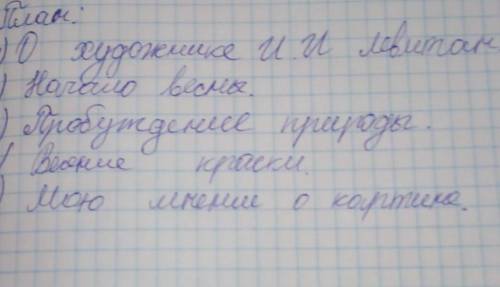 План:
) О художнике И.И Левитан
) Начало весны.
) Пробуждение природы.
) Весние краски.
) Мою мнение о картине.